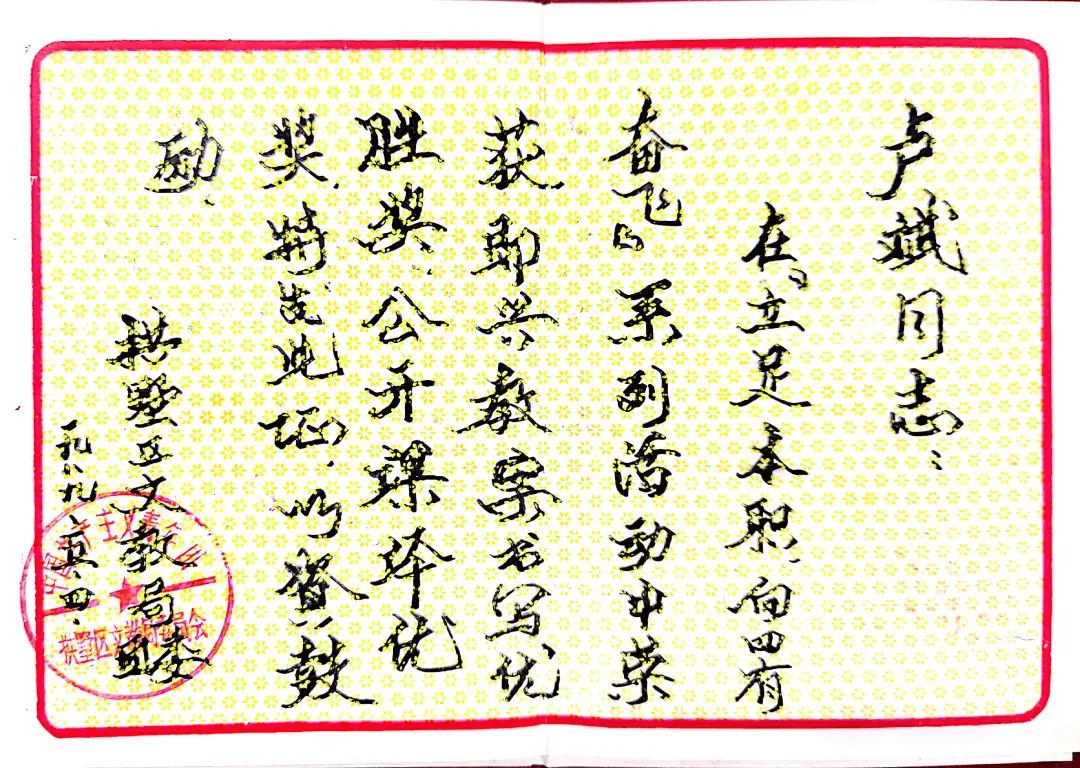 卢斌同志:
在“立足本职,向四有
奋飞”系列活动中荣
获即兴教案书写优
胜奖,公开课评优
奖,特发此证,以资鼓
励.
拱墅区文教局团委
一九八九.五.四.
中国共产主义青年团
拱墅区文教局委员会